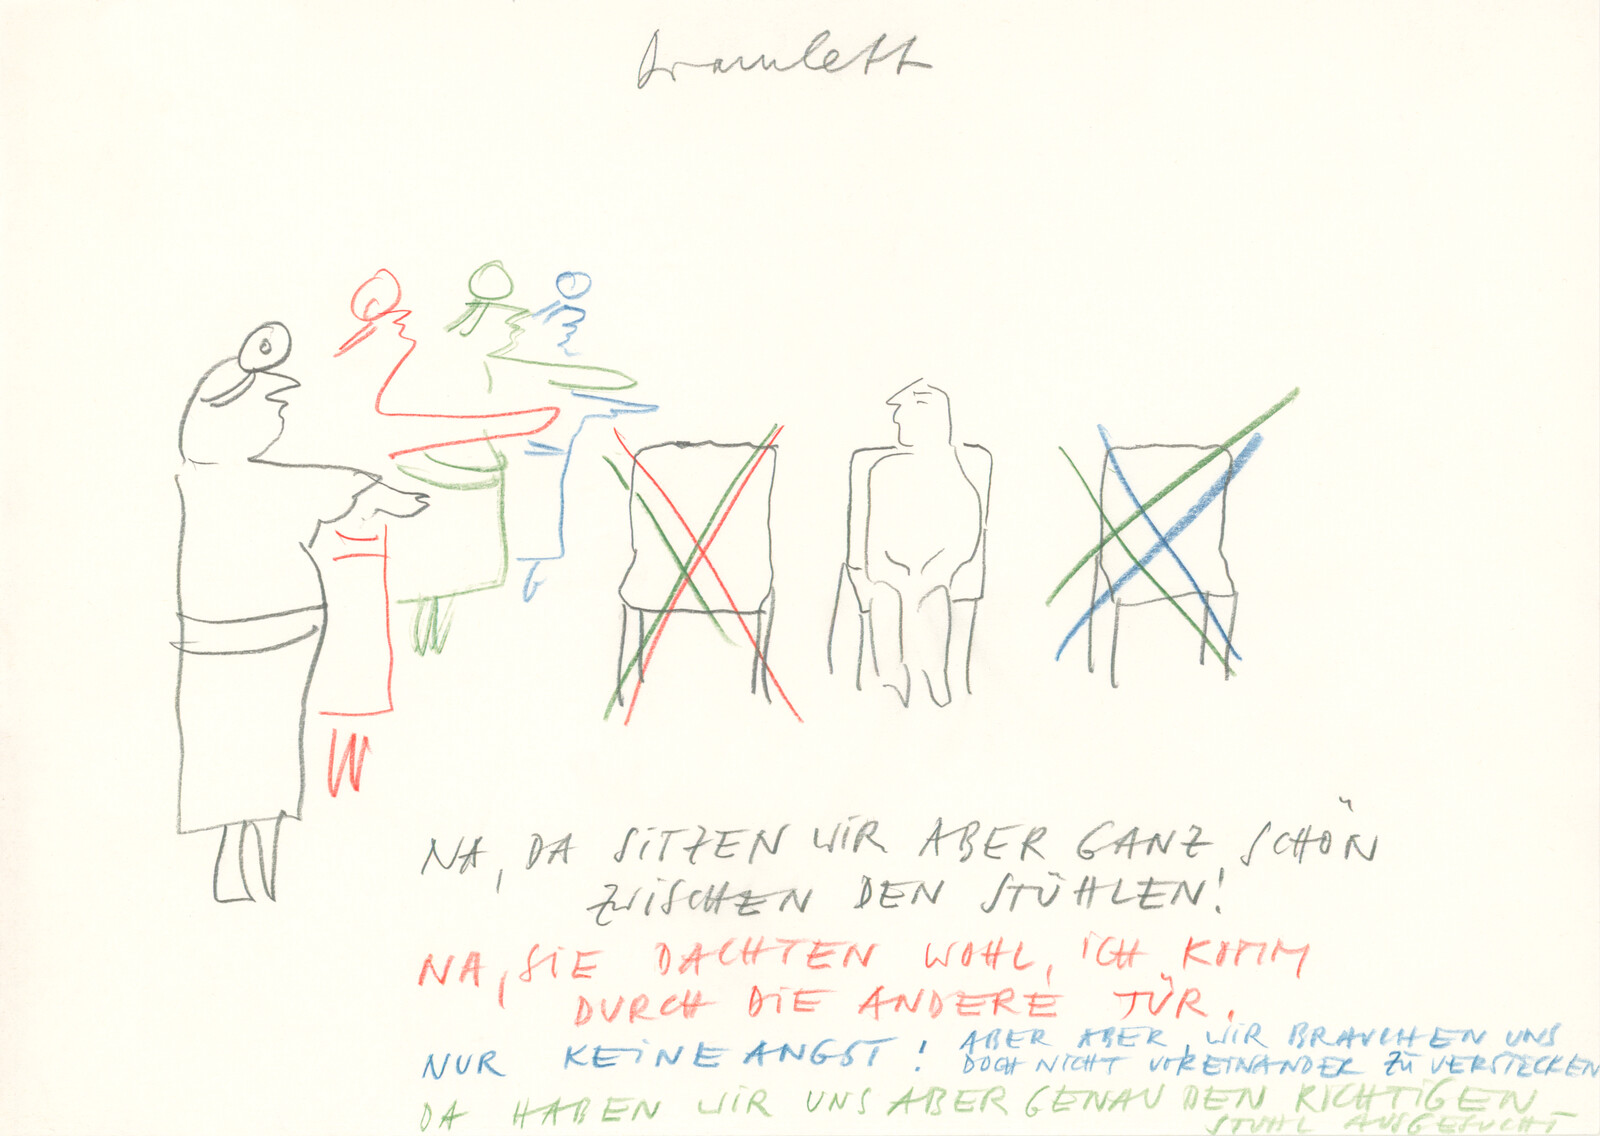 Dramlett
NA, DA SITZEN WIR ABER GANZ SCHÖN
ZWISCHEN DEN STÜHLEN!
NA, SIE DACHTEN WOHL, ICH KOMM
DURCH DIE ANDERE TÜR.
NUR KEINE ANGST! ABER ABER, WIR BRAUCHEN UNS
DOCH NICHT VOREINANDER ZU VERSTECKEN
DA HABEN WIR UNS ABER GENAU DEN RICHTIGEN
STUHL AUSGESUCHT